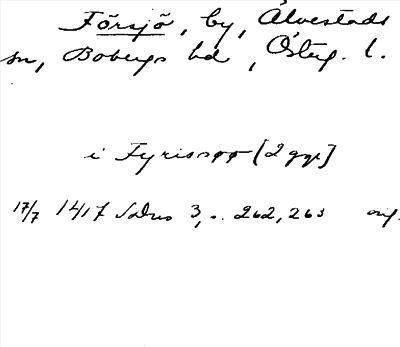 Försjö, by, Alvestads
sn, Bobergs hd, Österg. l.
i Fyrisøø [2 ggr]
17/7 1417 SDns 3, s. 262, 263 orig.